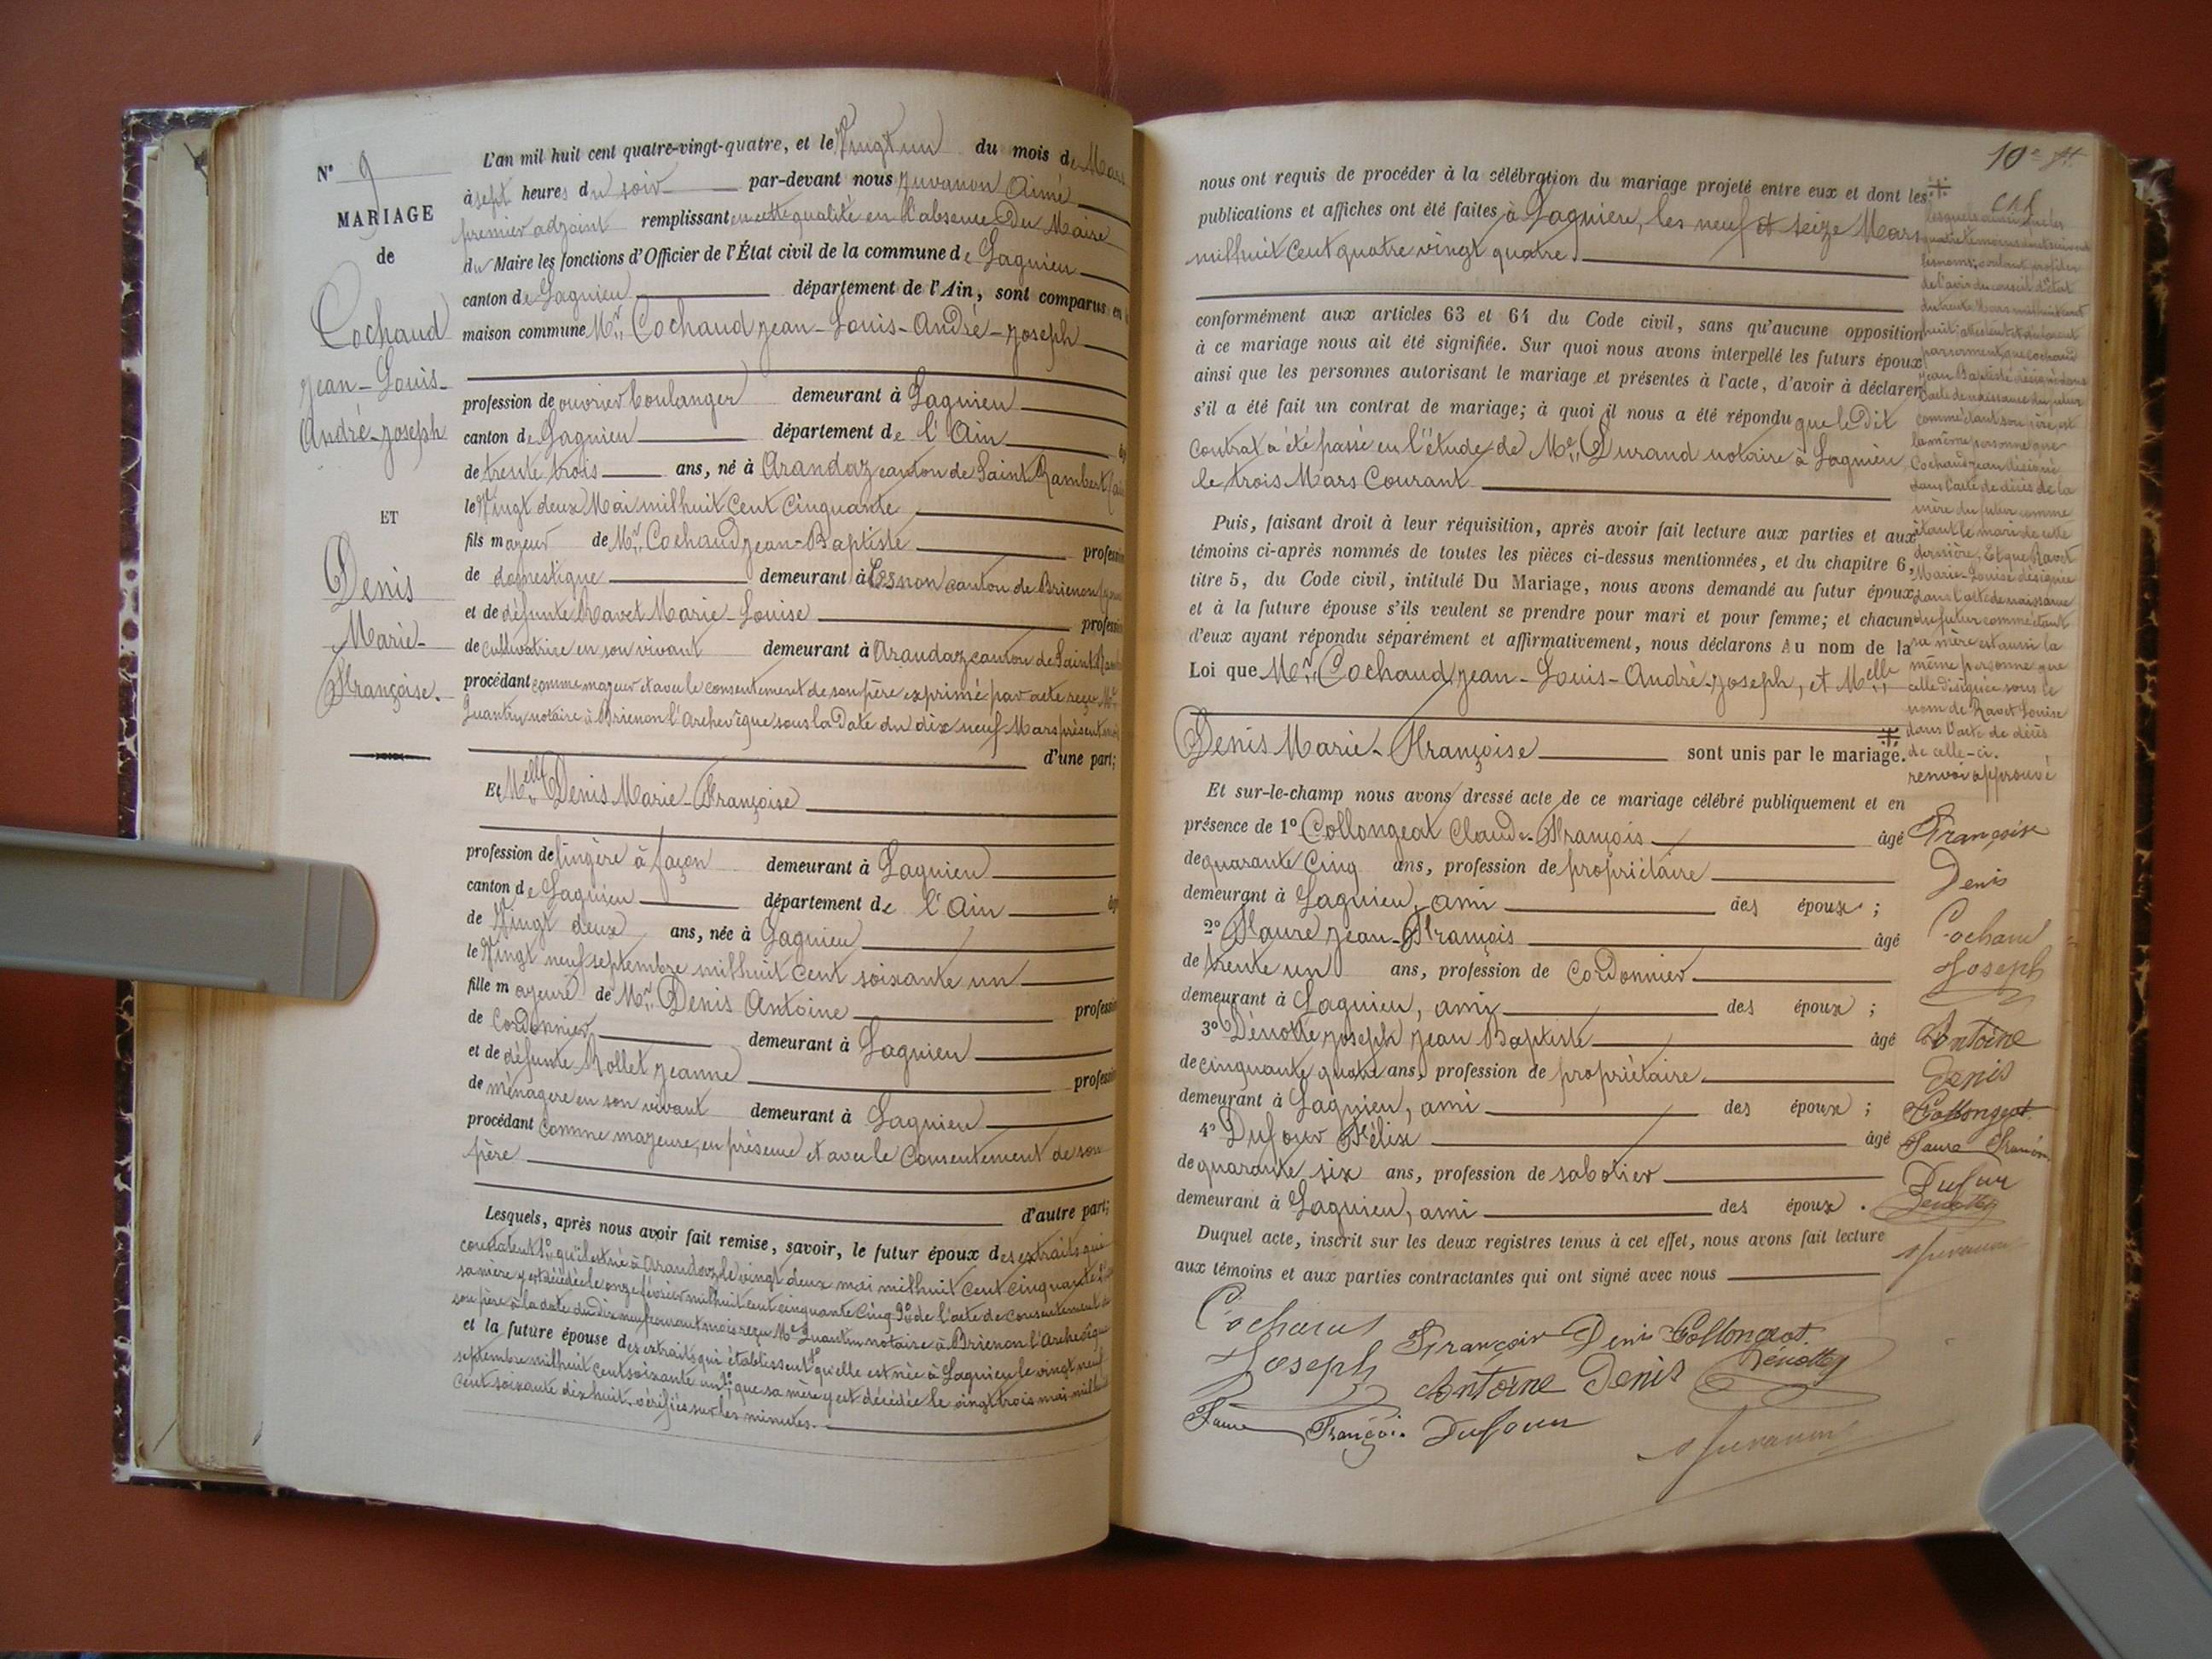 N° 9
MARIAGE
de
Cochaud
Jean-Louis-
André-Joseph
ET
Denis
Marie-
Françoise.
L'an mil huit cent quatre-vingt-quatre, et le Vingt un du mois de Mars
à sept heures du soir par-devant nous Juvanon Aimé
premier adjoint remplissant en cette qualité en l'absence Du Maire
du Maire les fonctions d'Officier de l'État civil de la commune de Lagnieu
canton de Lagnieu département de l'Ain, sont comparus en
maison commune Mr. Cochaud Jean-Louis-André-Joseph
profession de ouvrier boulanger demeurant à Lagnieu
canton de Lagnieu département de l'Ain
de trente trois ans, né à Arandaz canton de Saint Rambert
le Vingt deux Mai mil huit Cent Cinquante
fils majeur de Mr. Cochaud Jean-Baptiste profession
de domestique demeurant à canton de Brienon
et de défunte Ravet Marie-Louise profession
de cultivatrice en son vivant demeurant à Arandaz canton de Saint
procédant comme majeur et avec le consentement de son père exprimé par acte reçu Me
Quantin notaire à Brienon l'Archevêque sous la Date du dix neuf Mars présent mois
d'une part;
Et Melle Denis Marie-Françoise
profession de lingère à façon demeurant à Lagnieu
canton de Lagnieu département de l'Ain
de Vingt deux ans, née à Lagnieu
le Vingt neuf septembre mil huit Cent soixante un
fille majeure de Mr. Denis Antoine profession
de Cordonnier demeurant à Lagnieu
et de défunte Rollet Jeanne profession
de ménagère en son vivant demeurant à Lagnieu
procédant Comme majeure, en présence et avec le Consentement de son
père
d'autre part;
Lesquels, après nous avoir fait remise, savoir, le futur époux des extraits qui
constatent 1° qu'il est né à Arandaz le vingt deux mai mil huit Cent Cinquante 2°
sa mère y est décédée le onze février mil huit cent cinquante Cinq 3° de l'acte de consentement de
son père à la date du dix neuf courant mois reçu Me Quantin notaire à Brienon l'Archevêque
et la future épouse des extraits qui établissent 1° qu'elle est née à Lagnieu le vingt neuf
septembre mil huit cent soixante un 2° que sa mère y est décédée le vingt trois mai mil huit
Cent soixante dix huit. vérifiés sur les minutes.
10e ft.
nous ont requis de procéder à la célébration du mariage projeté entre eux et dont les
publications et affiches ont été faites à Lagnieu, les neuf et seize Mars
mil huit Cent quatre vingt quatre.
conformément aux articles 63 et 64 du Code civil, sans qu'aucune opposition
à ce mariage nous ait été signifiée. Sur quoi nous avons interpellé les futurs époux
ainsi que les personnes autorisant le mariage et présentes à l'acte, d'avoir à déclarer
s'il a été fait un contrat de mariage; à quoi il nous a été répondu que le Dit
Contrat à été passé en l'étude de Me. Durand notaire à Lagnieu
le trois Mars Courant
Puis, faisant droit à leur réquisition, après avoir fait lecture aux parties et aux
témoins ci-après nommés de toutes les pièces ci-dessus mentionnées, et du chapitre 6,
titre 5, du Code civil, intitulé Du Mariage, nous avons demandé au futur époux
et à la future épouse s'ils veulent se prendre pour mari et pour femme; et chacun
d'eux ayant répondu séparément et affirmativement, nous déclarons Au nom de la
Loi que Mr. Cochaud Jean-Louis-André-Joseph, et Melle
Denis Marie-Françoise sont unis par le mariage.
Et sur-le-champ nous avons dressé acte de ce mariage célébré publiquement et en
présence de 1° Collongeat Claude-François âgé
de quarante Cinq ans, profession de propriétaire
demeurant à Lagnieu, ami des époux;
2° Faure Jean-François âgé
de trente un ans, profession de Cordonnier
demeurant à Lagnieu, ami des époux;
3° Dénotte Joseph Jean Baptiste âgé
de cinquante quatre ans, profession de propriétaire
demeurant à Lagnieu, ami des époux;
4° Dufour Félix âgé
de quarante six ans, profession de sabotier
demeurant à Lagnieu, ami des époux.
Duquel acte, inscrit sur les deux registres tenus à cet effet, nous avons fait lecture
aux témoins et aux parties contractantes qui ont signé avec nous
Cochaud Françoise Denis Collongeat
Joseph Antoine Denis Dénottey
Faure François Dufour Juvanon
de l'avis du conseil d'état
du trente Mars mil huit cent
huit; attestent et déclarent
par serment, que Cochaud
Jean Baptiste désigné dans
l'acte de naissance du futur
comme étant son père est
la même personne que
Cochaud Jean désigné
dans l'acte de décès de la
mère du futur comme
étant le mari de cette
dernière; Et que Ravet
Marie-Louise désignée
dans l'acte de naissance
du futur comme étant
sa mère est aussi la
même personne que
celle désignée sous le
nom de Ravet Louise
dans l'acte de décès
de celle-ci.
renvoi approuvé
Françoise
Denis
Cochaud
Joseph
Antoine
Denis
Collongeat
Faure François
Dufour
Dénottey
Juvanon